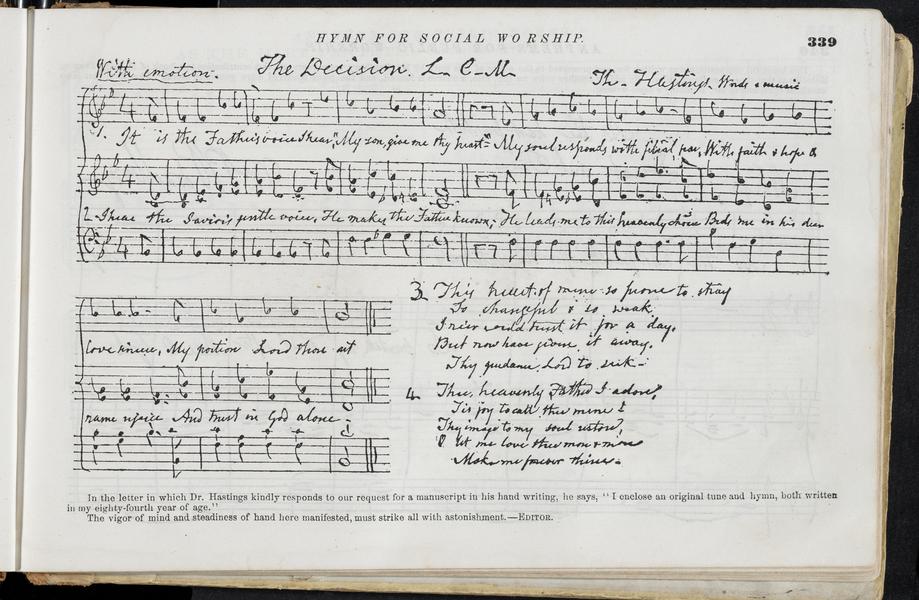 HYMN FOR SOCIAL WORSHIP.
339
With emotion. The Decision. L. C. M.
Th. Hastings. Words & music
1. It is the Father's voice I hear, "My son, give me thy heart" My soul responds with filial fear, With faith & hope &
2. I hear the Savior's gentle voice, He makes the Father known; He leads me to this heavenly choice Bids me in his dear
love sincere, My portion Lord thou art
name rejoice And trust in God alone
3. This heart of mine so prone to stray
So changeful & so weak
I ne'er could trust it for a day,
But now have given it away,
Thy guidance, Lord to seek
4. Thee, heavenly Father I adore,
Tis joy to call thee mine!
Thy image to my soul restore,
O let me love thee more & more
Make me forever thine.
In the letter in which Dr. Hastings kindly responds to our request for a manuscript in his hand writing, he says, "I enclose an original tune and hymn, both written
in my eighty-fourth year of age."
The vigor of mind and steadiness of hand here manifested, must strike all with astonishment.—EDITOR.